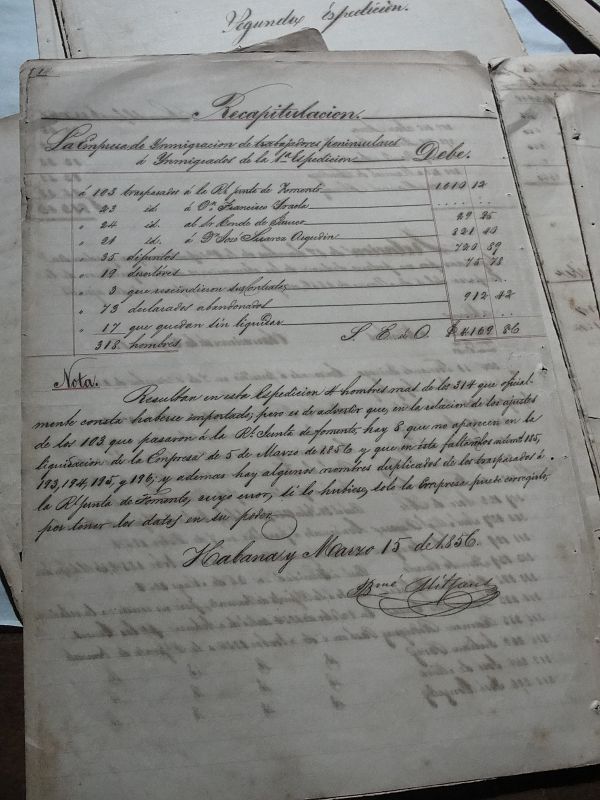 Segunda Espedicion.
Recapitulacion.
La Empresa de Ynmigracion de trabajadores peninsulares
á Ynmigrados de la 1ª Espedicion Debe.
á 103 traspasados á la Rl. Junta de Fomento 1010 12
" 23 id. á Dn. Francisco
" 24 id. al Sr. Conde de 29 25
" 21 id. á Dn. José Suarez Argudin 321 40
" 35 difuntos 720 89
" 19 desertores 75 78
" 3 que rescindieron sus contratas
" 73 declarados abandonados 912 42
" 17 que quedan sin liquidar
318 hombres S. E. ú O. 4.169 86
Nota.
Resultan en esta Espedicion 4 hombres mas de los 314 que oficial-
mente consta haberse importado, pero es de advertir que, en la relacion de los ajustes
de los 103 que pasaron á la Rl. Junta de fomento, hay 8 que no aparecen en la
liquidacion de la Empresa de 5 de Marzo de 1856 y que en esta faltan los 185,
193, 194, 195, y 196; y ademas hay algunos nombres duplicados de los traspasados á
la Rl. Junta de Fomento, cuyo error, si lo hubiese, solo la Empresa puede corregirlo,
por tener los datos en su poder.
Habana y Marzo 15 de 1856.
Bmé Mitjans